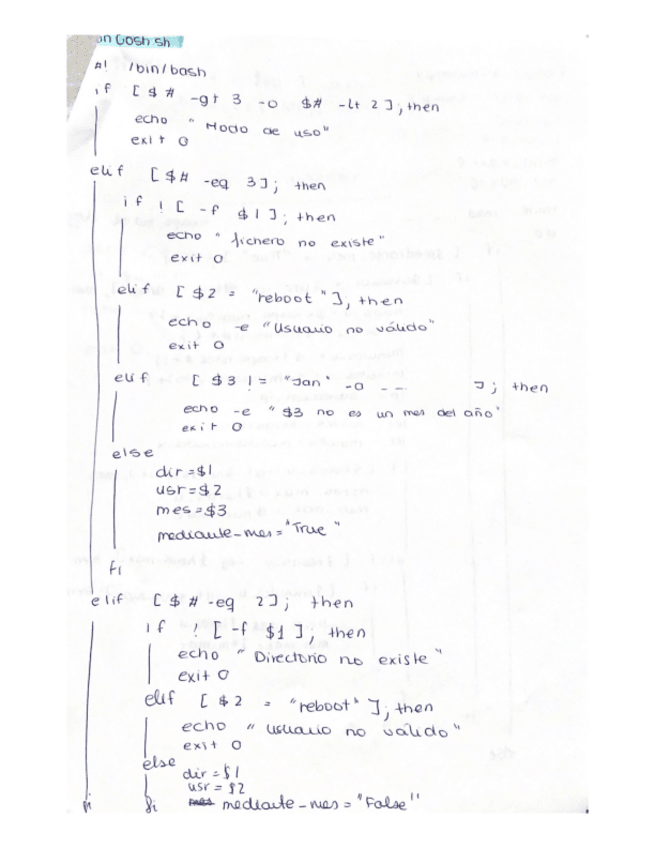 on Gosh sh
#! /bin/bash
if [ $ # -gt 3 -o $# -lt 2 ]; then
echo " Modo de uso"
exit 0
elif [ $# -eq 3 ]; then
if ! [ -f $1 ]; then
echo " fichero no existe"
exit 0
elif [ $2 = "reboot" ], then
echo -e "Usuario no válido"
exit 0
elif [ $3 != "Jan" -o - - ]; then
echo -e " $3 no es un mes del año"
exit 0
else
dir=$1
usr=$2
mes=$3
mediante-mes="True"
fi
elif [ $ # -eq 2 ]; then
if ! [ -f $1 ], then
echo " Directorio no existe"
exit 0
elif [ $2 = "reboot" ]; then
echo " usuario no válido"
exit 0
else
dir=$1
usr=$2
fi fi mediante-mes="False"